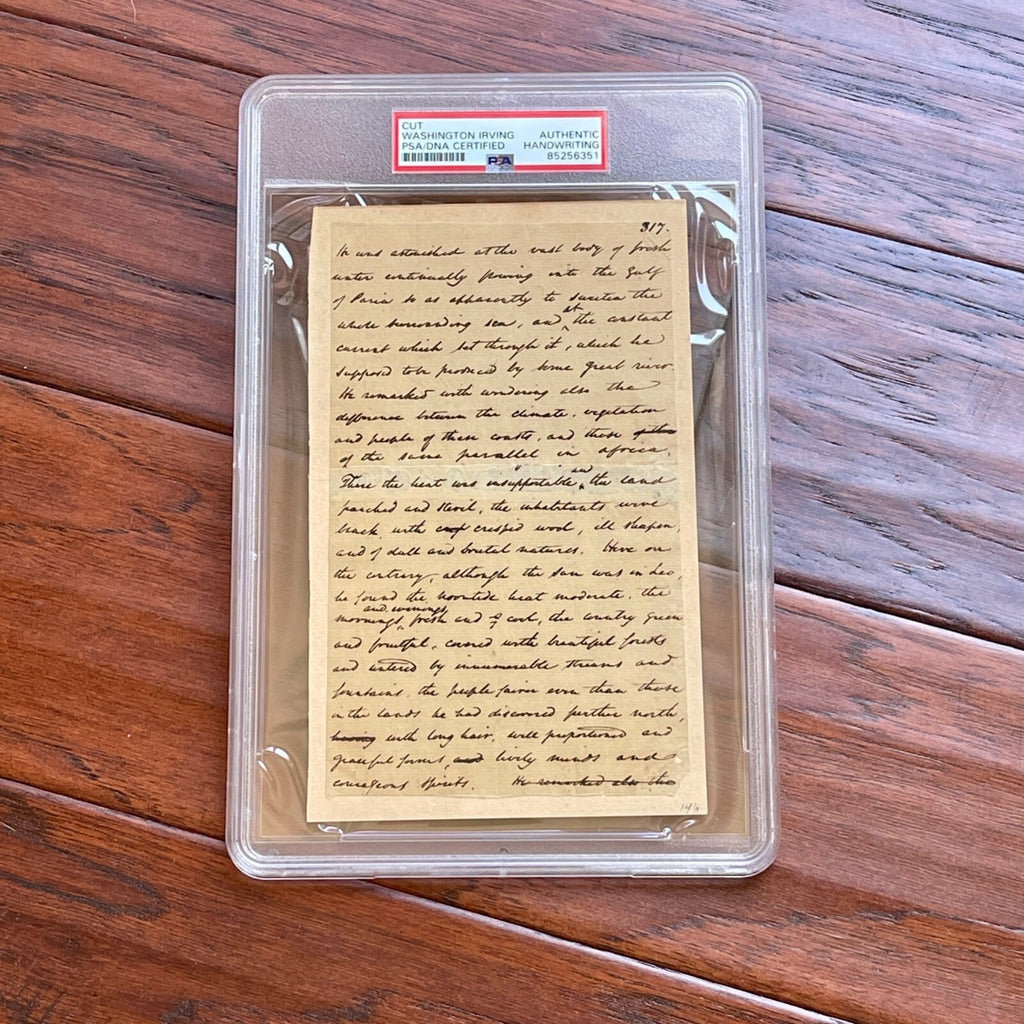 CUT
WASHINGTON IRVING AUTHENTIC
PSA/DNA CERTIFIED HANDWRITING
PSA 85256351
317.
He was astonished at the vast body of fresh
water continually flowing into the Gulf
of Paria so as apparently to sweeten the
whole surrounding sea, and at the constant
current which set through it, which he
supposed to be produced by some great river
He remarked with wondering also the
difference between the climate, vegetation
and people of these coasts, and those
of the same parallel in africa.
There the heat was insupportable and the land
parched and steril, the inhabitants were
black, with crisped wool, ill shapen,
and of dull and brutal natures. Here on
the contrary, although the Sun was in Leo,
he found the noontide heat moderate, the
mornings and evenings fresh and cool, the country green
and fruitful, covered with beautiful forests
and watered by innumerable streams and
fountains, the people fairer even than those
in the lands he had discovered further north,
having with long hair, well proportioned and
graceful forms, and lively minds and
courageous spirits. He remarked also the